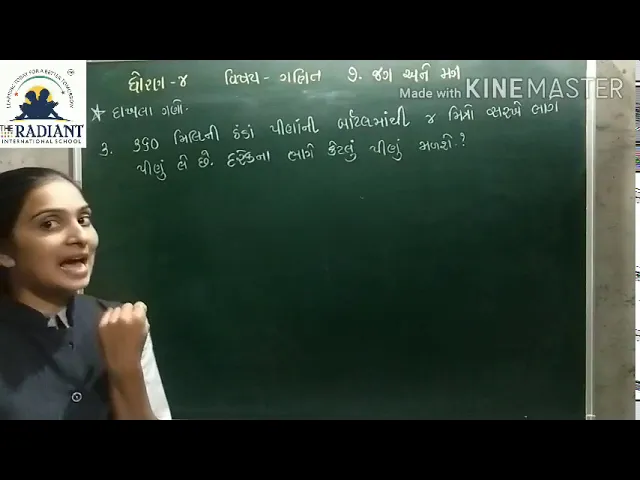 LEARNING TODAY FOR A BETTER TOMORROW
THE RADIANT
INTERNATIONAL SCHOOL
Made with KINEMASTER
ધોરણ - ૪ વિષય - ગણિત ૭. જગ અને મગ
* દાખલા ગણો.
૩. ૩૬૦ મિલિની ઠંડાં પીણાંની બૉટલમાંથી ૪ મિત્રો સરખે ભાગે
પીણું લે છે. દરેકના ભાગે કેટલું પીણું મળશે?